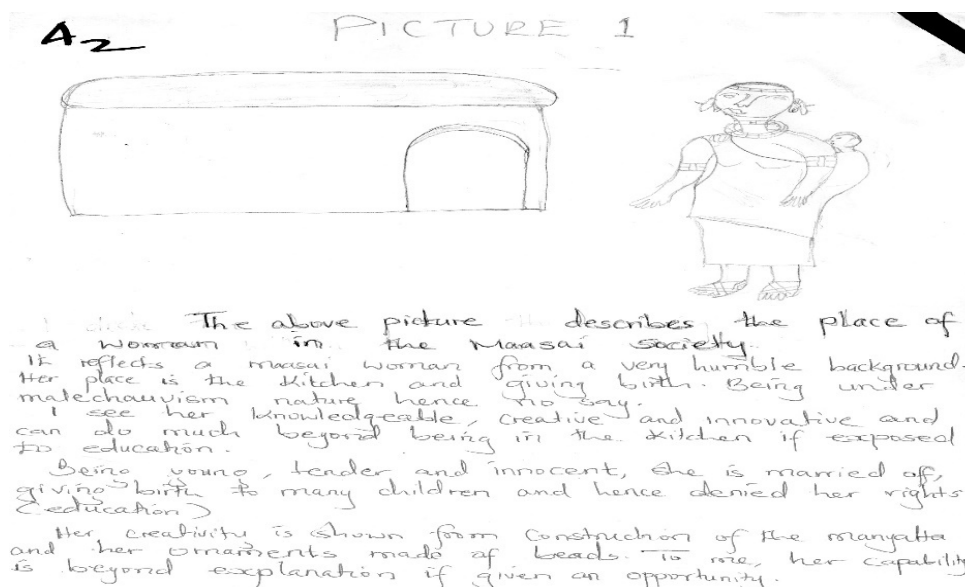 A2
PICTURE 1
The above picture describes the place of
a woman in the Maasai society
It reflects a maasai woman from a very humble background.
Her place is the kitchen and giving birth. Being under
malechauvism nature hence no say.
I see her knowledgeable, creative and innovative and
can do much beyond being in the kitchen if exposed
to education.
Being young, tender and innocent, she is married off,
giving birth to many children and hence denied her rights
(education)
Her creativity is shown from construction of the manyatta
and her ornaments made of beads. To me, her capability
is beyond explanation if given an opportunity.